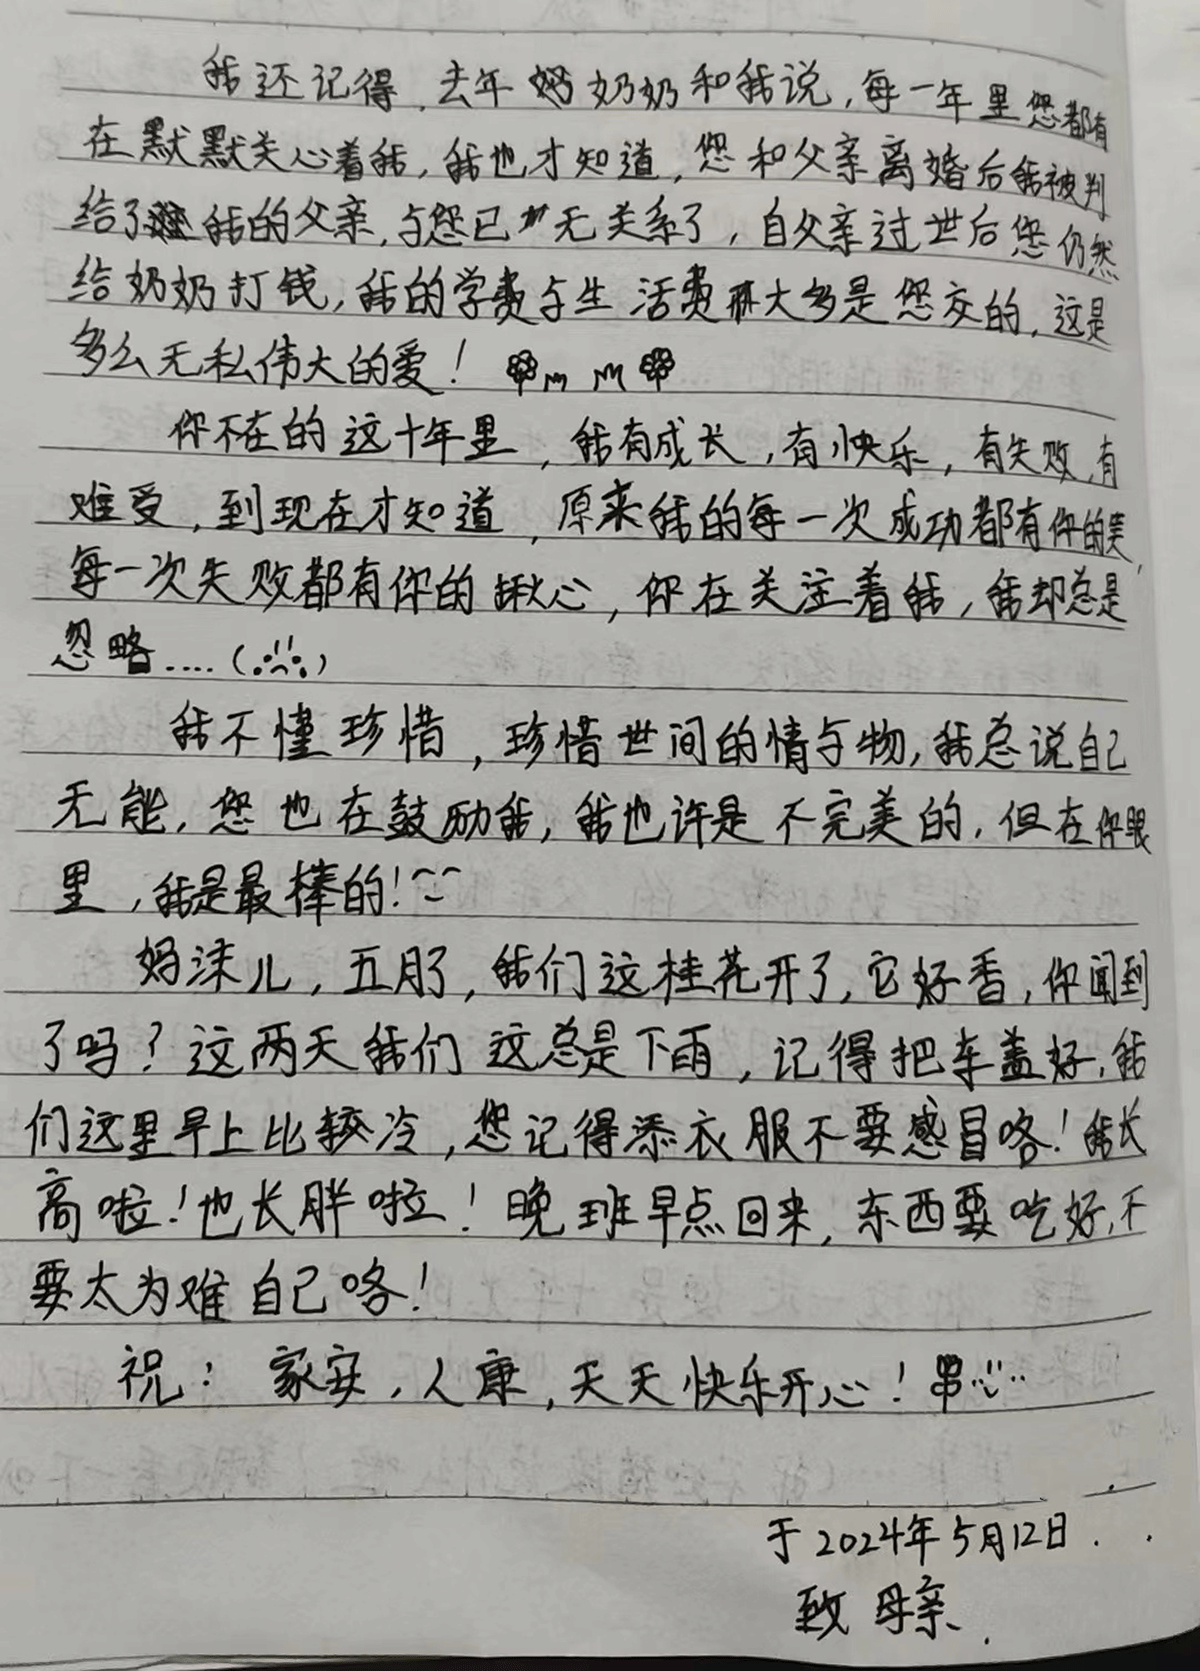 我还记得,去年奶奶和我说,每一年里您都有
在默默关心着我,我也才知道,您和父亲离婚后我被判
给了我的父亲,与您已无关系了,自父亲过世后您仍然
给奶奶打钱,我的学费与生活费大多是您交的,这是
多么无私伟大的爱!
你不在的这十年里,我有成长,有快乐,有失败,有
难受,到现在才知道,原来我的每一次成功都有你的笑,
每一次失败都有你的揪心,你在关注着我,我却总是
忽略....(
我不懂珍惜,珍惜世间的情与物,我总说自己
无能,您也在鼓励我,我也许是不完美的,但在你眼
里,我是最棒的!
妈沫儿,五月了,我们这桂花开了,它好香,你闻到
了吗?这两天我们这总是下雨,记得把车盖好,我
们这里早上比较冷,您记得添衣服不要感冒咯!我长
高啦!也长胖啦!晚班早点回来,东西要吃好,不
要太为难自己咯!
祝:家安,人康,天天快乐开心!
于2024年5月12日.
致 母亲.